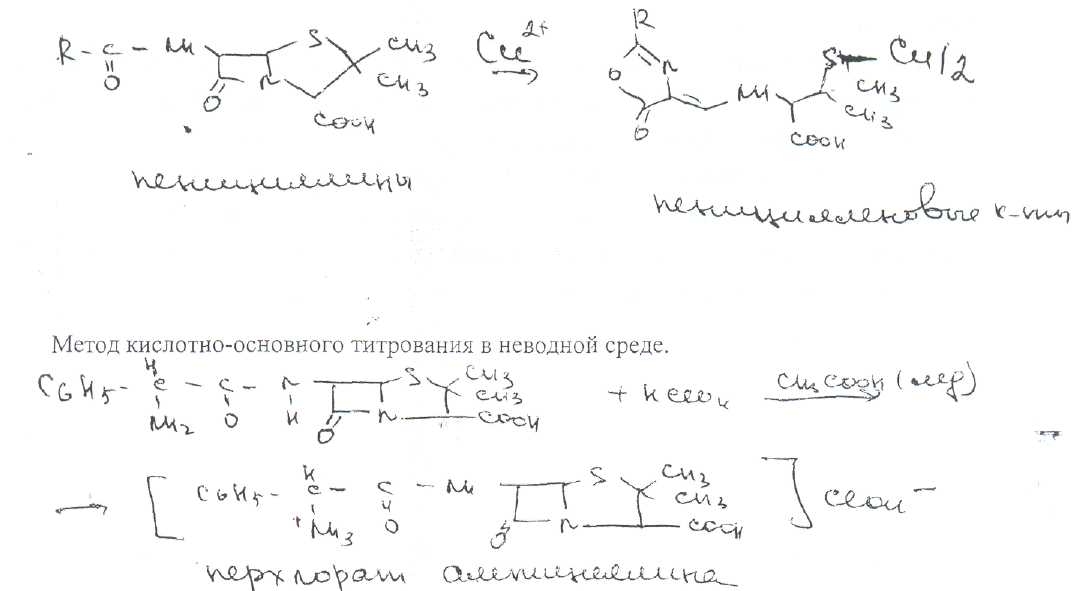 R - C - NH S CH3 CH3 Cu 2+ R
O O N COOH O N NH S - Cu/2
CH3 CH3 COOH O
пенициллины
пенициленовые к-ты
Метод кислотно-основного титрования в неводной среде.
C6H5 - C - C - N S CH3 CH3 + HClO4 CH3COOH (лед)
H NH2 O H O N COOH
[ C6H5 - C - C - NH S CH3 CH3 ] ClO4 -
H + NH3 O O N COOH
перхлорат ампициллина